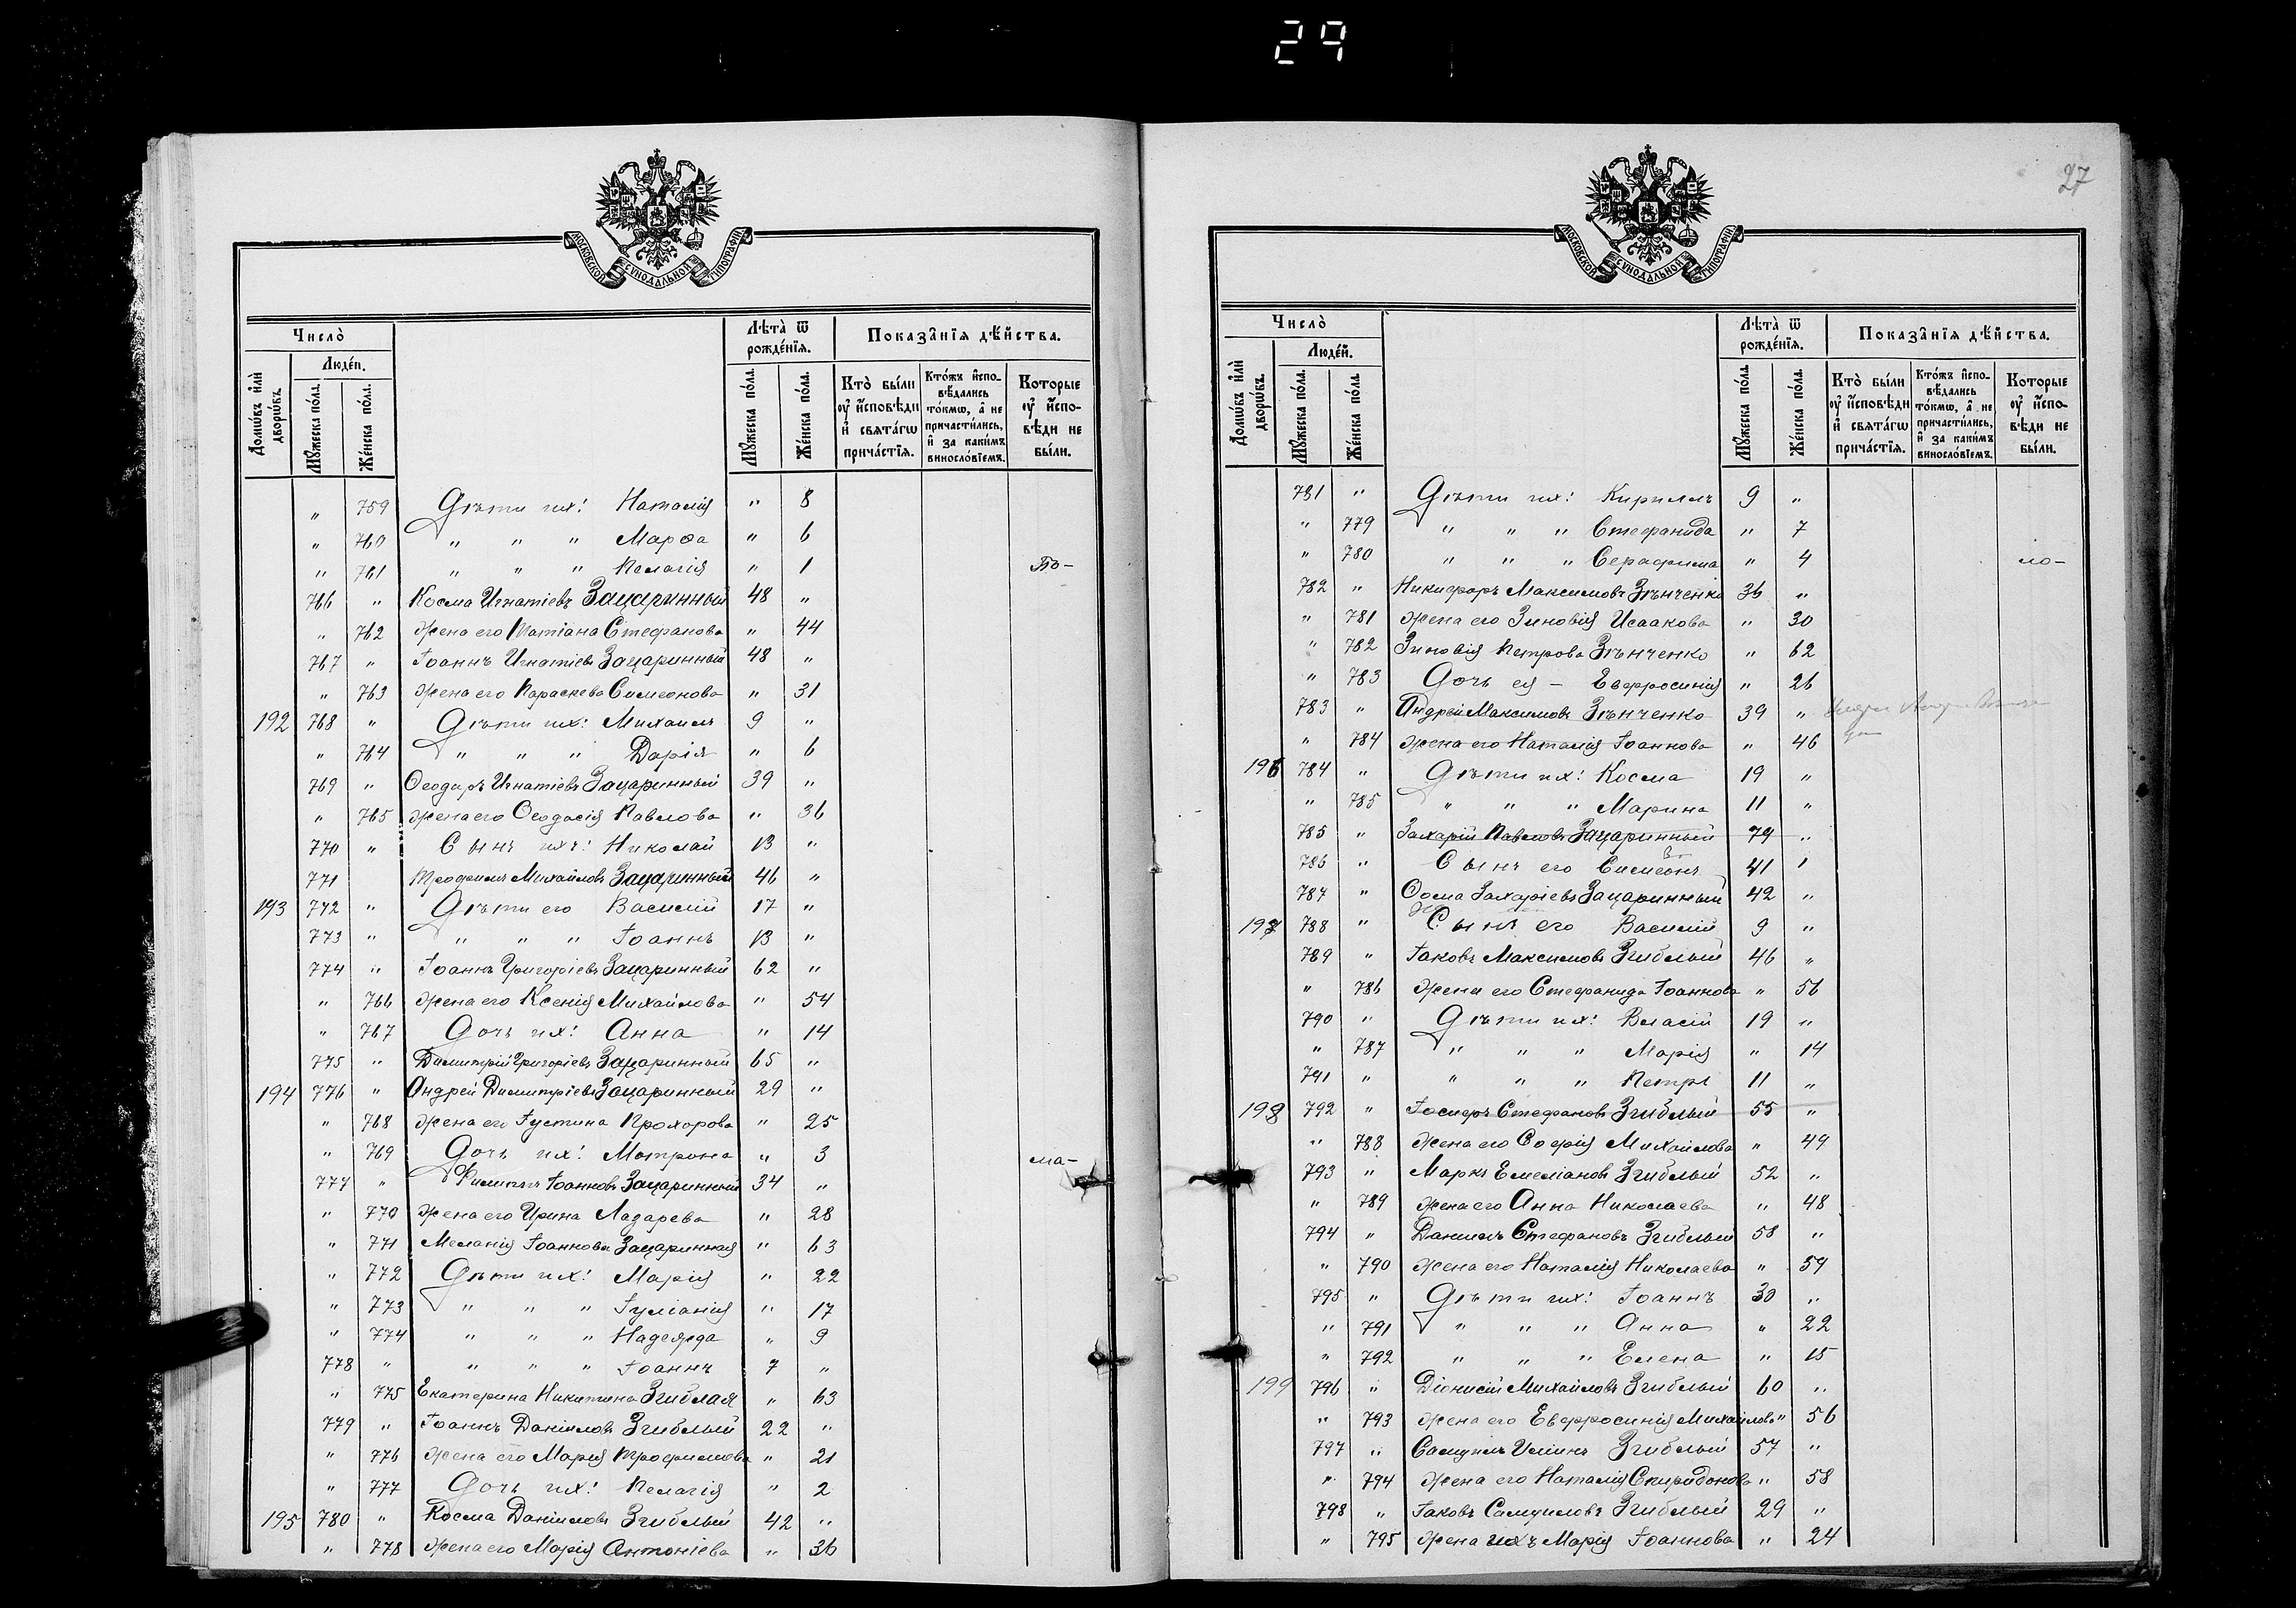 29
МОСКОВСКОЙ СѴНОДАЛЬНОЙ ТИПОГРАФІИ
Число̀
Людей.
Домѡвъ и҆лѝ дворѡвъ.
Мꙋ́жеска по́ла.
Же́нска по́ла.
Лѣта̀ ѿ рожде́нїѧ.
Мꙋ́жеска по́ла.
Же́нска по́ла.
Показа̑нїѧ дѣ́йства.
Кто̀ бы́ли ᲂу҆ и҆́сповѣди и҆ свѧта́гѡ прича́стїѧ.
Кто́жъ и҆сповѣ́дались то́кмѡ, а҆ не причасти́лись, и҆ за каки́мъ винослᲂ́вїемъ.
Которые ᲂу҆ и҆́сповѣди не бы́ли.
" 759 Дѣти ихъ: Наталія " 8
" 760 " " " Марѳа " 6
" 761 " " " Пелагія " 1 То-
766 " Косма Игнатіевъ Зацаринный 48 "
" 762 Жена его Татіана Стефанова " 44
767 " Іоаннъ Игнатіевъ Зацаринный 48 "
" 763 Жена его Параскева Симеонова " 31
192 768 " Дѣти ихъ: Михаилъ 9 "
" 764 " " " Дарія " 6
769 " Ѳеодоръ Игнатіевъ Зацаринный 39 "
" 765 Жена его Ѳеодосія Павлова " 36
770 " Сынъ ихъ: Николай 13 "
771 Трофимъ Михайловъ Зацаринный 46 "
193 772 " Дѣти его Василій 17 "
773 " " " " Іоаннъ 13 "
774 " Іоаннъ Григоріевъ Зацаринный 62 "
" 766 Жена его Ксенія Михайлова " 54
" 767 Дочь ихъ: Анна " 14
775 " Димитрій Григоріевъ Зацаринный 65 "
194 776 " Андрей Димитріевъ Зацаринный 29 "
" 768 Жена его Іустина Прохорова " 25
" 769 Дочь ихъ: Матрона " 3 ма-
777 " Филиппъ Іоанновъ Зацаринный 34 "
" 770 Жена его Ирина Лазарева " 28
" 771 Меланія Іоаннова Зацаринная " 63
" 772 Дѣти ихъ: Марія " 22
" 773 " " " Іуліанія " 17
" 774 " " " Надежда " 9
778 " " " " Іоаннъ 7 "
" 775 Екатерина Никитина Згиблая " 63
779 " Іоаннъ Даніиловъ Згиблый 22 "
" 776 Жена его Марія Трофимова " 21
" 777 Дочь ихъ: Пелагія " 2
195 780 " Косма Даніиловъ Згиблый 42 "
" 778 Жена его Марія Антоніева " 36
27
МОСКОВСКОЙ СѴНОДАЛЬНОЙ ТИПОГРАФІИ
Число̀
Людей.
Домѡвъ и҆лѝ дворѡвъ.
Мꙋ́жеска по́ла.
Же́нска по́ла.
Лѣта̀ ѿ рожде́нїѧ.
Мꙋ́жеска по́ла.
Же́нска по́ла.
Показа̑нїѧ дѣ́йства.
Кто̀ бы́ли ᲂу҆ и҆́сповѣди и҆ свѧта́гѡ прича́стїѧ.
Кто́жъ и҆сповѣ́дались то́кмѡ, а҆ не причасти́лись, и҆ за каки́мъ винослᲂ́вїемъ.
Которые ᲂу҆ и҆́сповѣди не бы́ли.
781 " Дѣти ихъ: Кириллъ 9 "
" 779 " " " Стефанида " 7
" 780 " " " Серафима " 4 ло-
782 " Никифоръ Максимовъ Зѣнченко 36 "
" 781 Жена его Зиновія Исаакова " 30
" 782 Зиновія Петрова Зѣнченко " 62
" 783 Дочь ея - Евфросинія " 26
783 " Андрей Максимовъ Зѣнченко 39 "
" 784 Жена его Наталія Іоаннова " 46
196 784 " Дѣти ихъ: Косма 19 "
" 785 " " " Марина 11 "
785 " Захарій Павловъ Зацаринный 74 "
786 " Сынъ его Симеонъ 41 "
787 " Ѳома Захаріевъ Зацаринный 42 "
197 788 " Сынъ его Василій 9 "
789 " Іаковъ Максимовъ Згиблый 46 "
" 786 Жена его Стефанида Іоаннова " 56
790 " Дѣти ихъ: Власій 19 "
" 787 " " " Марія " 14
791 " " " " Петръ 11 "
198 792 " Іосифъ Стефановъ Згиблый 55 "
" 788 Жена его Софія Михайлова " 49
793 " Маркъ Емеліановъ Згиблый 52 "
" 789 Жена его Анна Николаева " 48
794 " Даніилъ Стефановъ Згиблый 58 "
" 790 Жена его Наталія Николаева " 59
795 " Дѣти ихъ: Іоаннъ 30 "
" 791 " " " Анна " 22
" 792 " " " Елена " 15
199 796 " Діонисій Михайловъ Згиблый 60 "
" 793 Жена его Евфросинія Михайлова " 56
797 " Самуилъ Иліинъ Згиблый 57 "
" 794 Жена его Наталія Спиридонова " 58
798 " Іаковъ Самуиловъ Згиблый 29 "
" 795 Жена ихъ Марія Іоаннова " 24